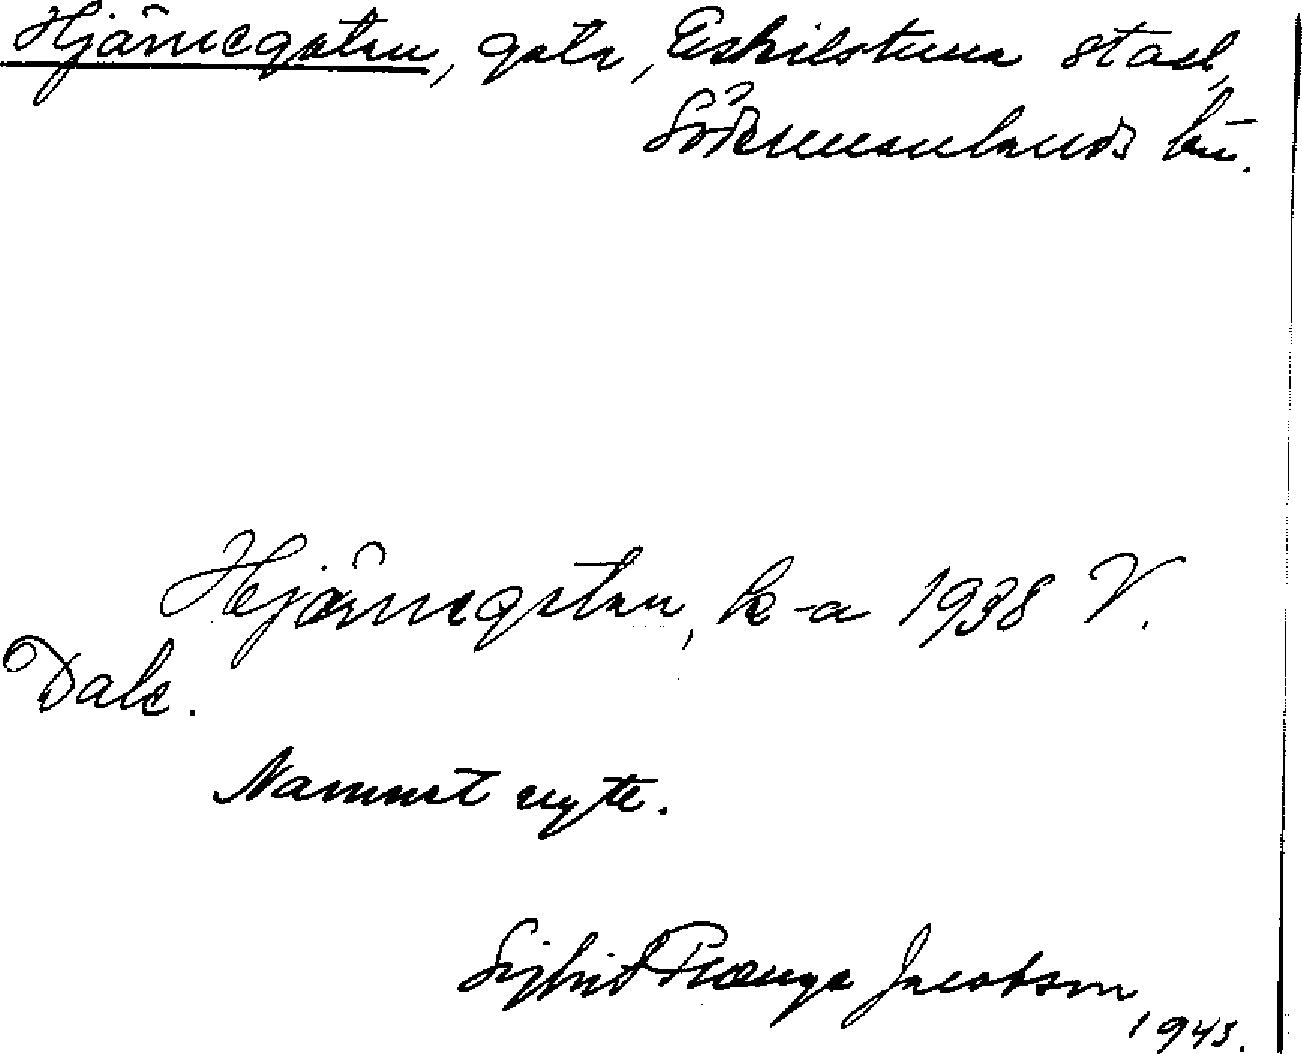 Hjärnegatan, gata, Eskilstuna stad,
Södermanlands län.
Hjärnegatan, k-a 1938 V.
Dale.
Namnet nytt.
Sigfrid Jacobson
1943.